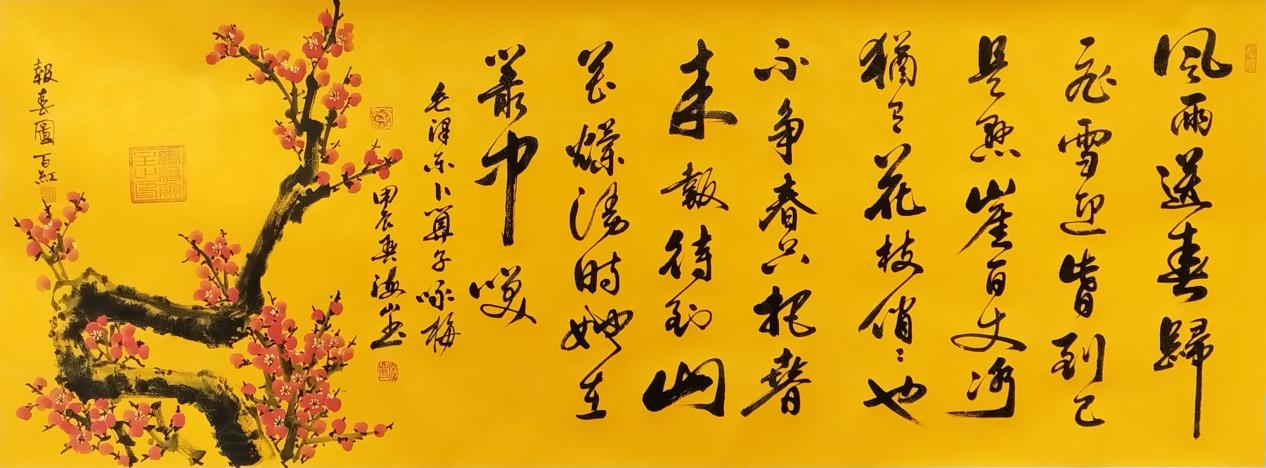 风雨送春歸
飛雪迎旾到已
是悬崖百丈冰
猶有花枝俏〻也
不争春只把萅
来報待到山
花爛漫時她在
叢中笑
毛澤东卜算子咏梅
甲辰
報春圖百紅